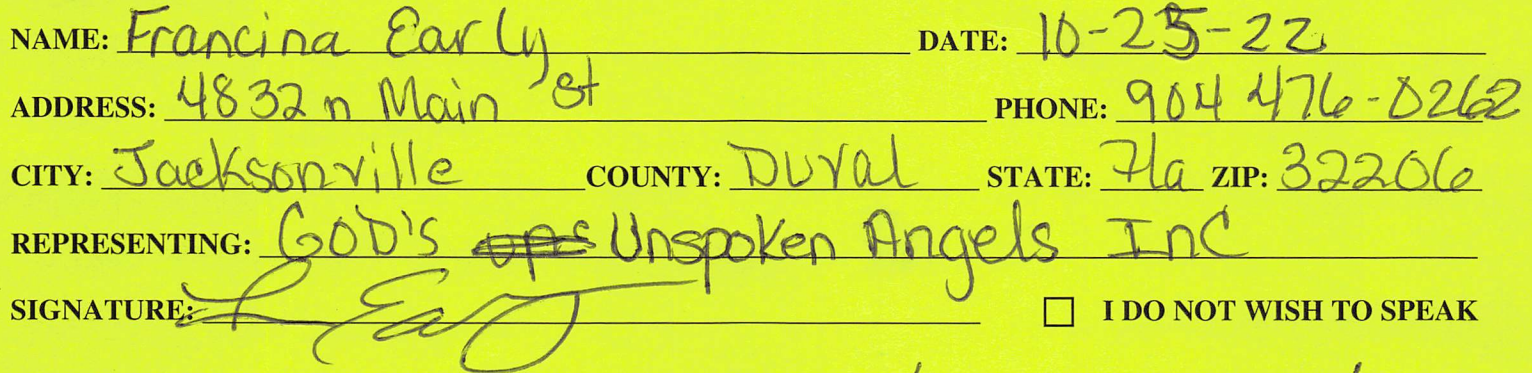 NAME: Francina Early DATE: 10-25-22
ADDRESS: 4832 n Main St PHONE: 904 476-0262
CITY: Jacksonville COUNTY: Duval STATE: Fla ZIP: 32206
REPRESENTING: GOD'S Unspoken Angels Inc
SIGNATURE: I DO NOT WISH TO SPEAK